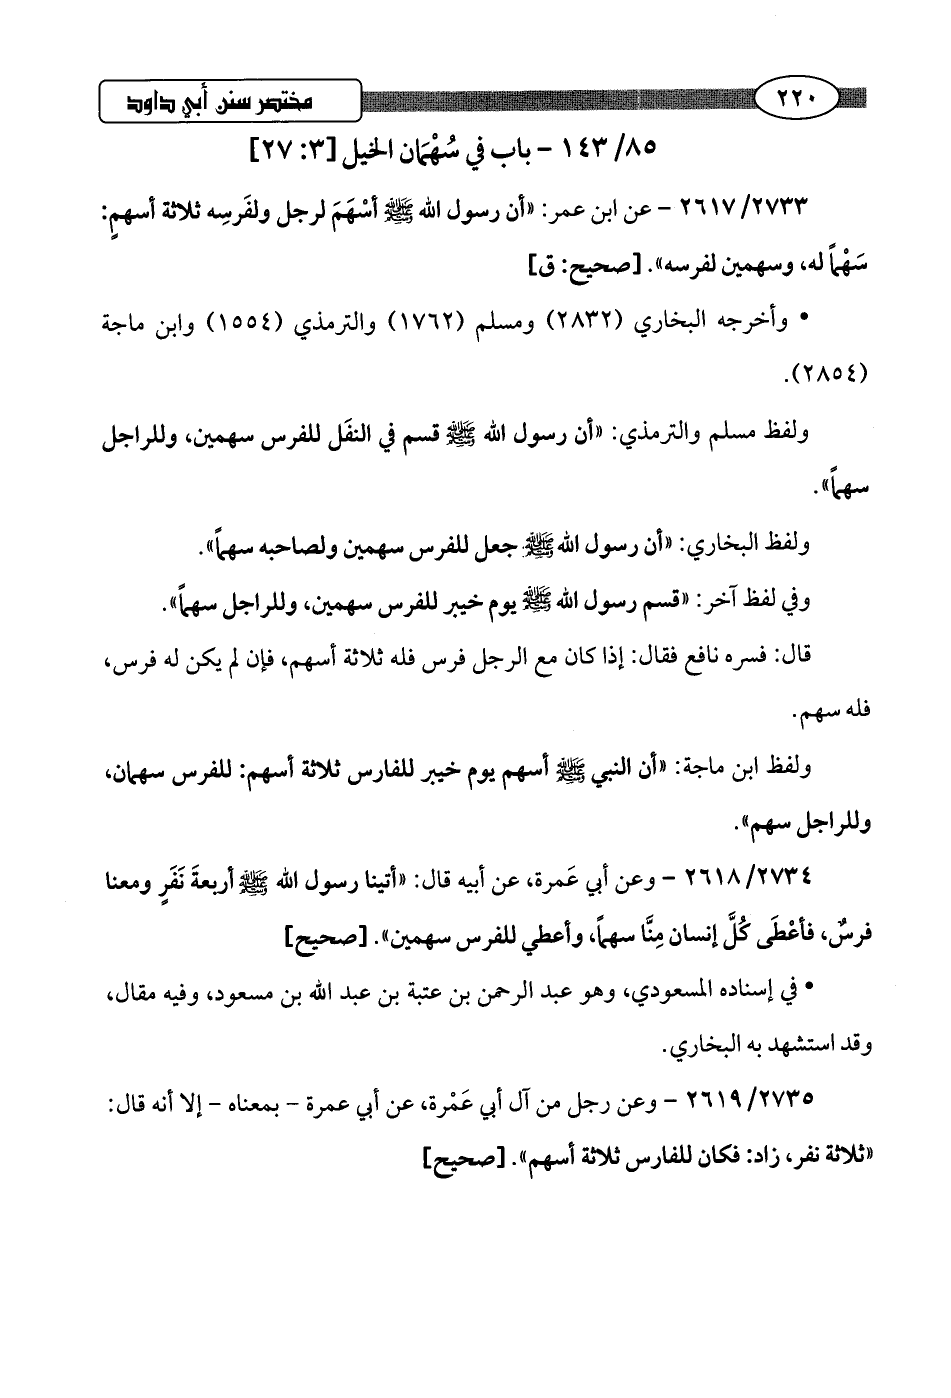 ٢٢٠ مختصر سنن أبي داود
٨٥/ ١٤٣ - باب في سُهْمَان الخيل [٣: ٢٧]
٢٦١٧/٢٧٣٣ - عن ابن عمر: «أن رسول الله ﷺ أسْهَمَ لرجل ولفَرسِه ثلاثة أسهمٍ:
سَهْماً له، وسهمين لفرسه». [صحيح: ق]
• وأخرجه البخاري (٢٨٣٢) ومسلم (١٧٦٢) والترمذي (١٥٥٤) وابن ماجة
(٢٨٥٤).
ولفظ مسلم والترمذي: «أن رسول الله ﷺ قسم في النفَل للفرس سهمين، وللراجل
سهماً».
ولفظ البخاري: «أن رسول الله ﷺ جعل للفرس سهمين ولصاحبه سهماً».
وفي لفظ آخر: «قسم رسول الله ﷺ يوم خيبر للفرس سهمين، وللراجل سهماً».
قال: فسره نافع فقال: إذا كان مع الرجل فرس فله ثلاثة أسهم، فإن لم يكن له فرس،
فله سهم.
ولفظ ابن ماجة: «أن النبي ﷺ أسهم يوم خيبر للفارس ثلاثة أسهم: للفرس سهمان،
وللراجل سهم».
٢٦١٨/٢٧٣٤ - وعن أبي عَمرة، عن أبيه قال: «أتينا رسول الله ﷺ أربعةَ نَفَرٍ ومعنا
فرسٌ، فأعْطَى كُلَّ إنسان مِنَّا سهماً، وأعطي للفرس سهمين». [صحيح]
• في إسناده المسعودي، وهو عبد الرحمن بن عتبة بن عبد الله بن مسعود، وفيه مقال،
وقد استشهد به البخاري.
٢٦١٩/٢٧٣٥ - وعن رجل من آل أبي عَمْرة، عن أبي عمرة - بمعناه - إلا أنه قال:
«ثلاثة نفر، زاد: فكان للفارس ثلاثة أسهم». [صحيح]